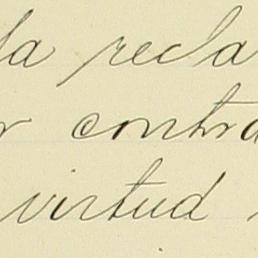 la recla
r contra
virtud